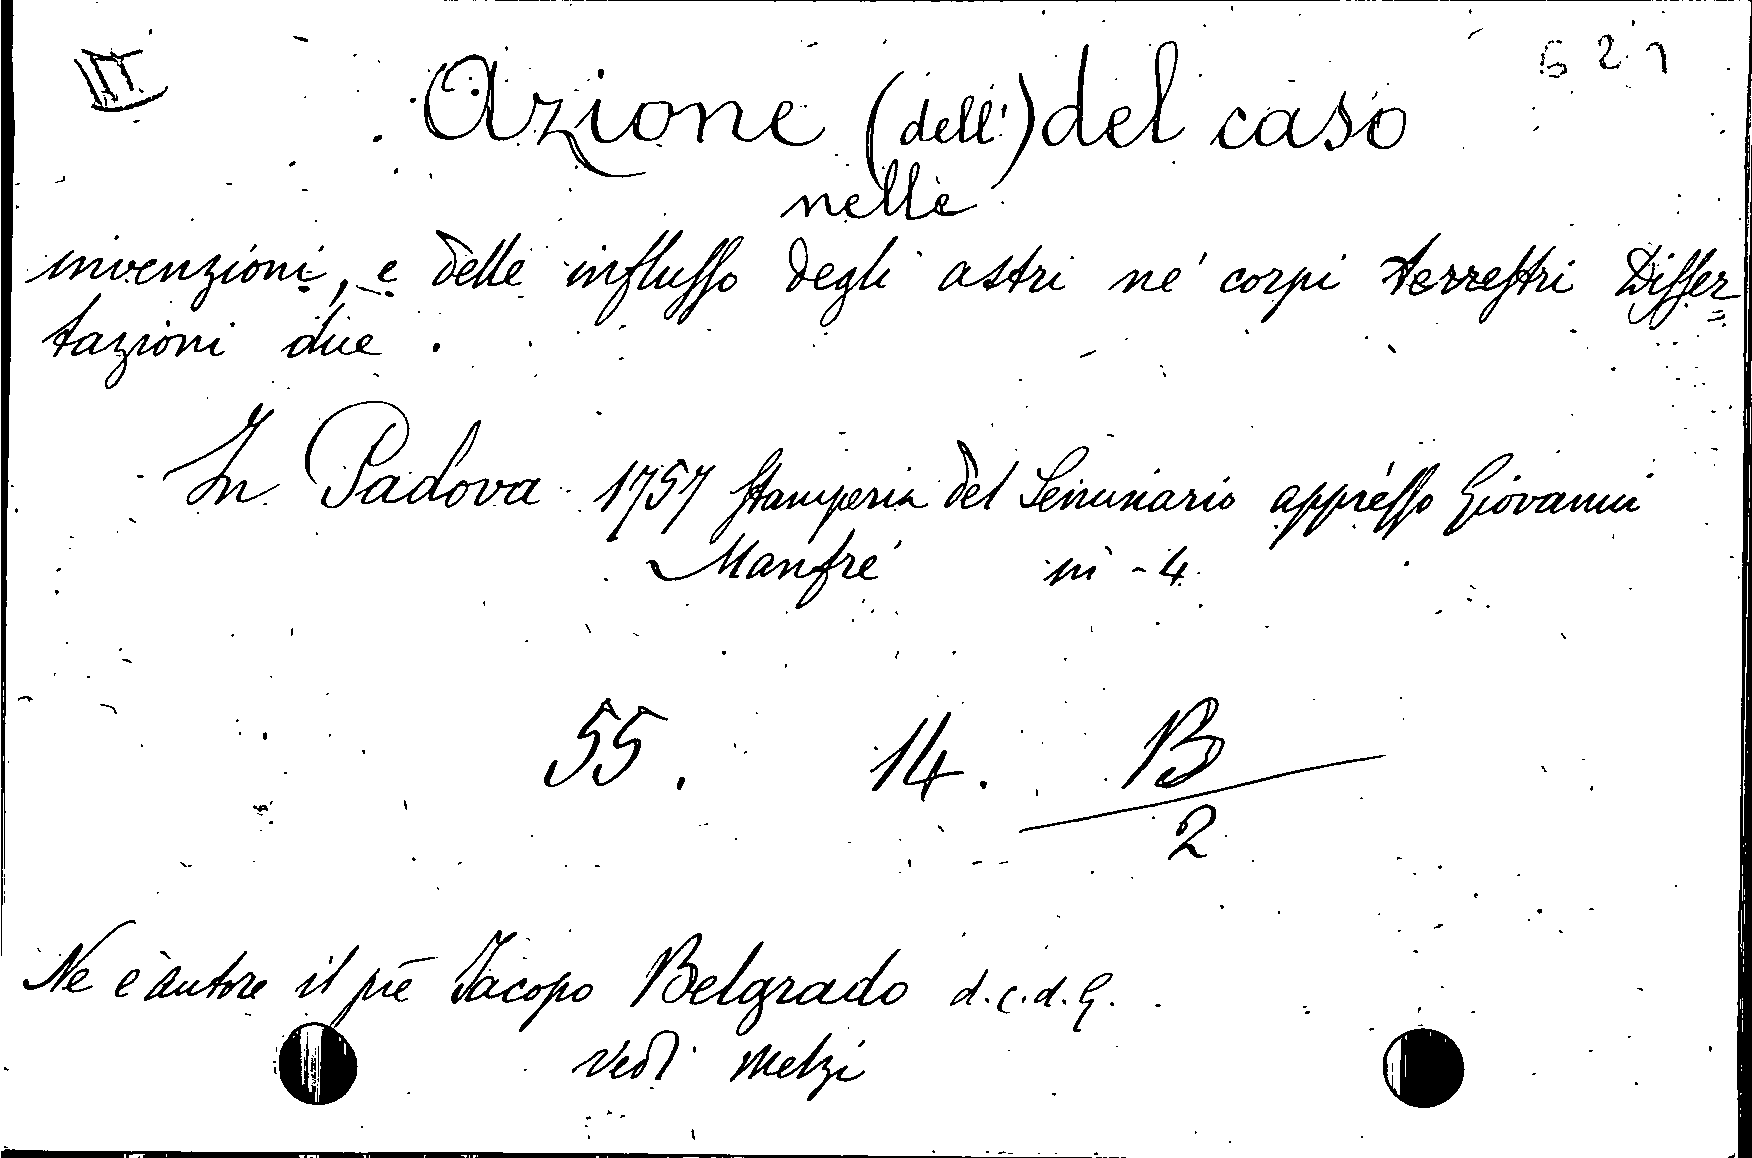 III 621
Azione (dell') del caso
nelle
invenzioni, e delle influsso degli astri ne' corpi terrestri Disser=
tazioni due.
In Padova 1757 Stamperia del Seminario appresso Giovanni
Manfrè in-4
55. 14. B
2
Ne è autore il pre Jacopo Belgrado d.c.d.G.
vedi Melzi